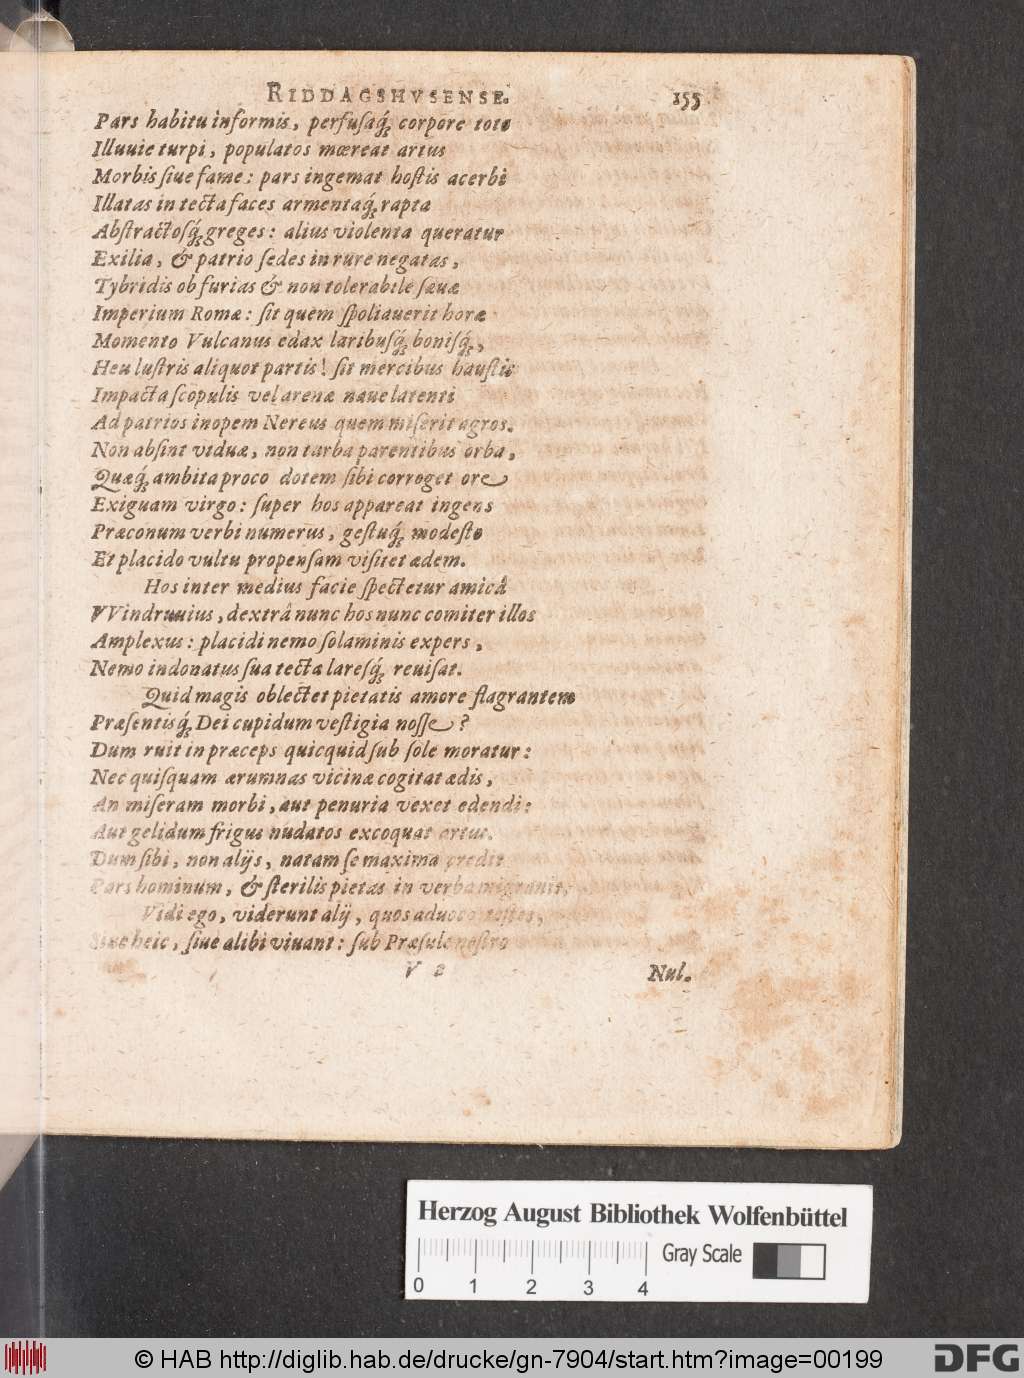 RIDDAGSHVSENSE. 155
Pars habitu informis, perfuſaq́; corpore toto
Illuuie turpi, populatos mœreat artus
Morbis ſiue fame: pars ingemat hoſtis acerbi
Illatas in tecta faces armentaq́; rapta
Abſtractoſq́; greges: alius violenta queratur
Exilia, & patrio ſedes in rure negatas,
Tybridis ob furias & non tolerabile ſæuæ
Imperium Romæ: ſit quem ſpoliauerit horæ
Momento Vulcanus edax laribuſq́; boniſq́;,
Heu luſtris aliquot partis! ſit mercibus hauſtis
Impacta ſcopulis vel arenæ naue latenti
Ad patrios inopem Nereus quem miſerit agros.
Non abſint viduæ, non turba parentibus orba,
Quæq́; ambita proco dotem ſibi corroget ore
Exiguam virgo: ſuper hos appareat ingens
Præconum verbi numerus, geſtuq́; modeſto
Et placido vultu propenſam viſitet ædem.
Hos inter medius facie ſpectetur amicâ
VVindruuius, dextrâ nunc hos nunc comiter illos
Amplexus: placidi nemo ſolaminis expers,
Nemo indonatus ſua tecta lareſq́; reuiſat.
Quid magis oblectet pietatis amore flagrantem
Præſentisq́; Dei cupidum veſtigia noſſe?
Dum ruit in præceps quicquid ſub ſole moratur:
Nec quiſquam ærumnas vicinæ cogitat ædis,
An miſeram morbi, aut penuria vexet edendi:
Aut gelidum frigus nudatos excoquat artus.
Dum ſibi, non alijs, natam ſe maxima credit
Pars hominum, & ſterilis pietas in verba migrauit,
Vidi ego, viderunt alij, quos aduoco teſtes,
Siue heic, ſiue alibi viuant: ſub Præſule noſtro
V 2 Nul.
Herzog August Bibliothek Wolfenbüttel
Gray Scale
0 1 2 3 4
© HAB http://diglib.hab.de/drucke/gn-7904/start.htm?image=00199
DFG